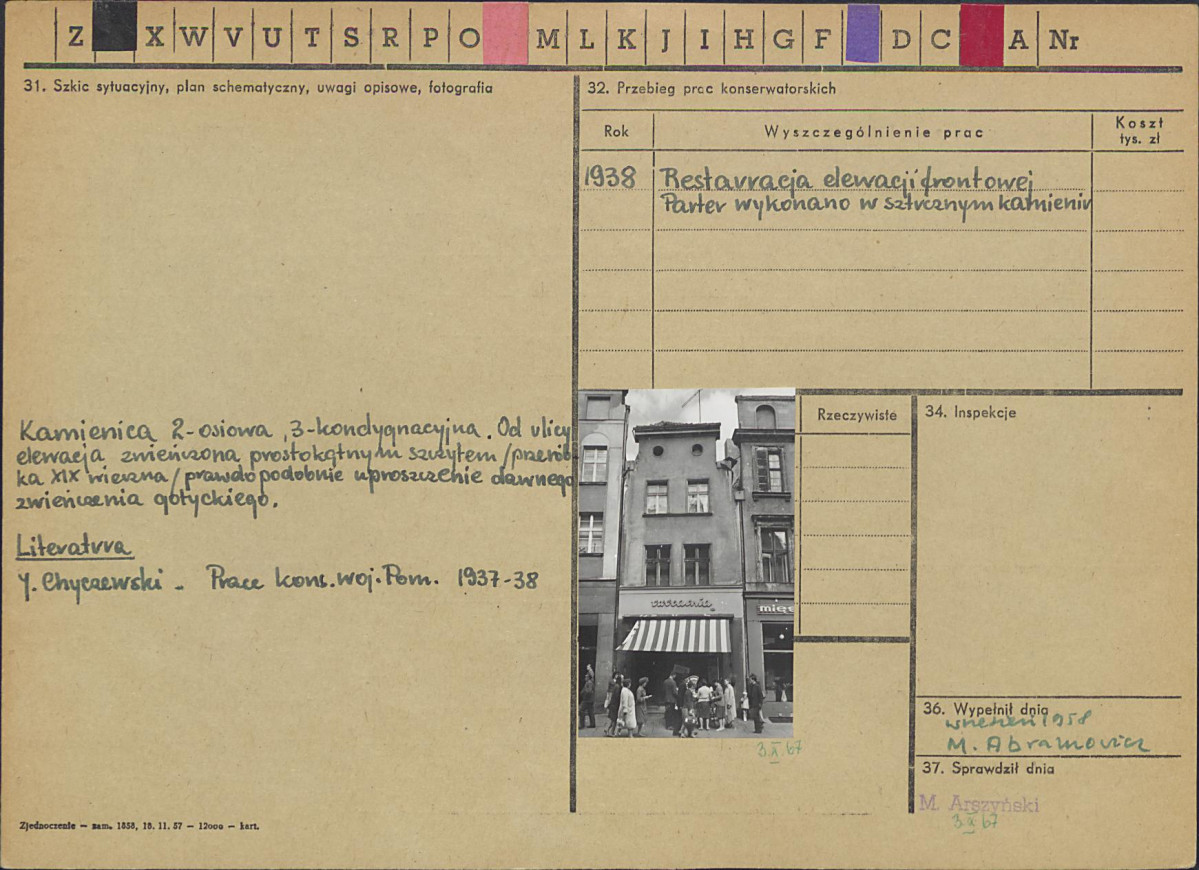 Z X W V U T S R P O M L K J I H G F D C A Nr
31. Szkic sytuacyjny, plan schematyczny, uwagi opisowe, fotografia
Kamienica 2-osiowa, 3-kondygnacyjna. Od ulicy
elewacja zwieńczona prostokątnym szczytem /przerób-
ka XIX wieczna/ prawdopodobnie uproszczenie dawnego
zwieńczenia gotyckiego.
Literatura
J. Chyczewski - Prace kons. woj. Pom. 1937-38
Zjednoczenie — zam. 1858, 18. 11. 57 — 12000 — kart.
32. Przebieg prac konserwatorskich
Rok Wyszczególnienie prac Koszt
tys. zł
1938 Restauracja elewacji frontowej
Parter wykonano w sztucznym kamieniu
mięs
3 X 67
Rzeczywiste
34. Inspekcje
36. Wypełnił dnia
wrzesień 1958
M. Abramowicz
37. Sprawdził dnia
M. Arszyński
3 X 67